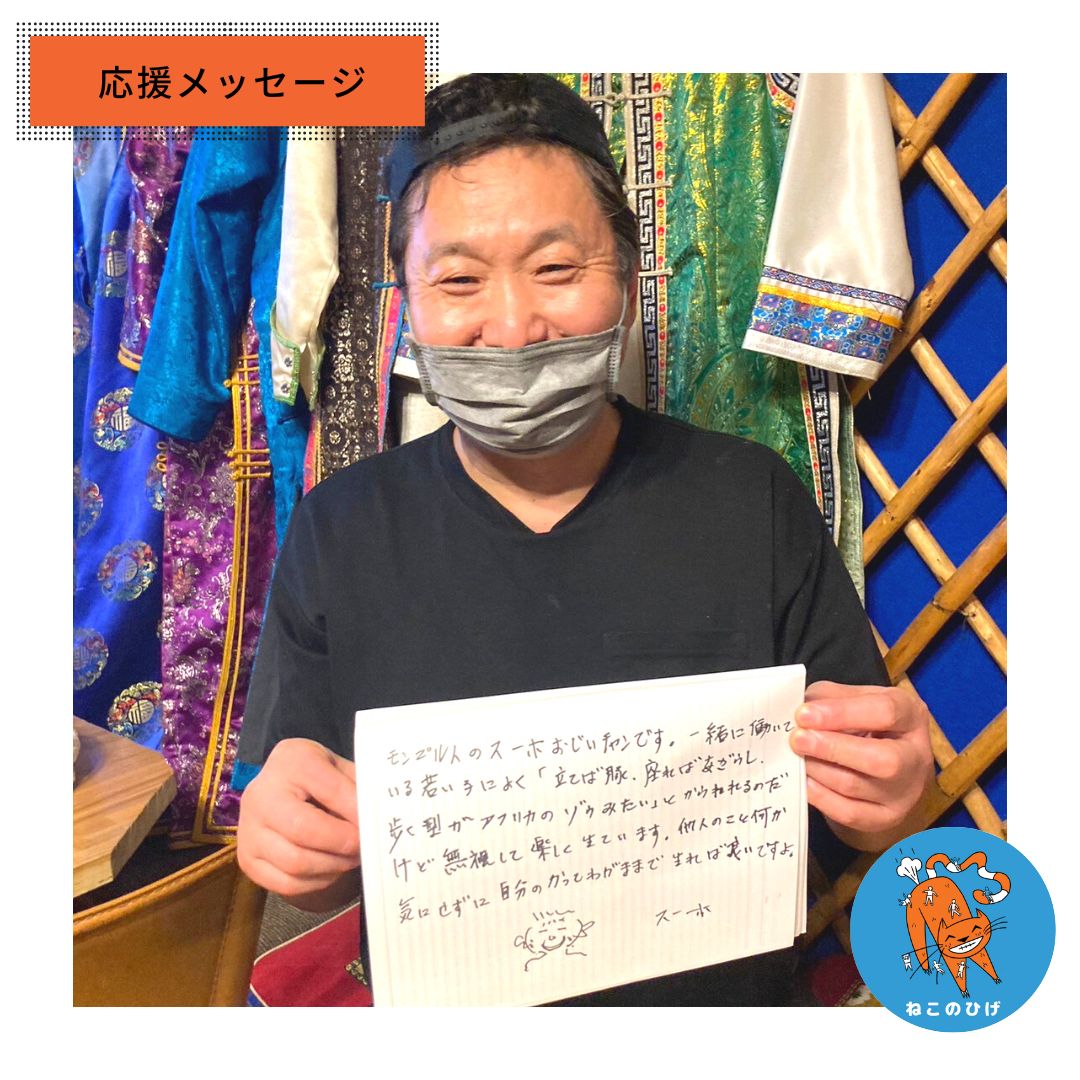 応援メッセージ
モンゴル人のスーホおじいチャンです。一緒に働いて
いる若い手によく「立てば豚、座ればあざらし、
歩く型がアフリカのゾウみたい」とからわれるのだ
けど無視して楽しく生ています。他人のこと何が
気にせずに自分のかってわがままで生れば良いですよ。
スーホ
ねこのひげ